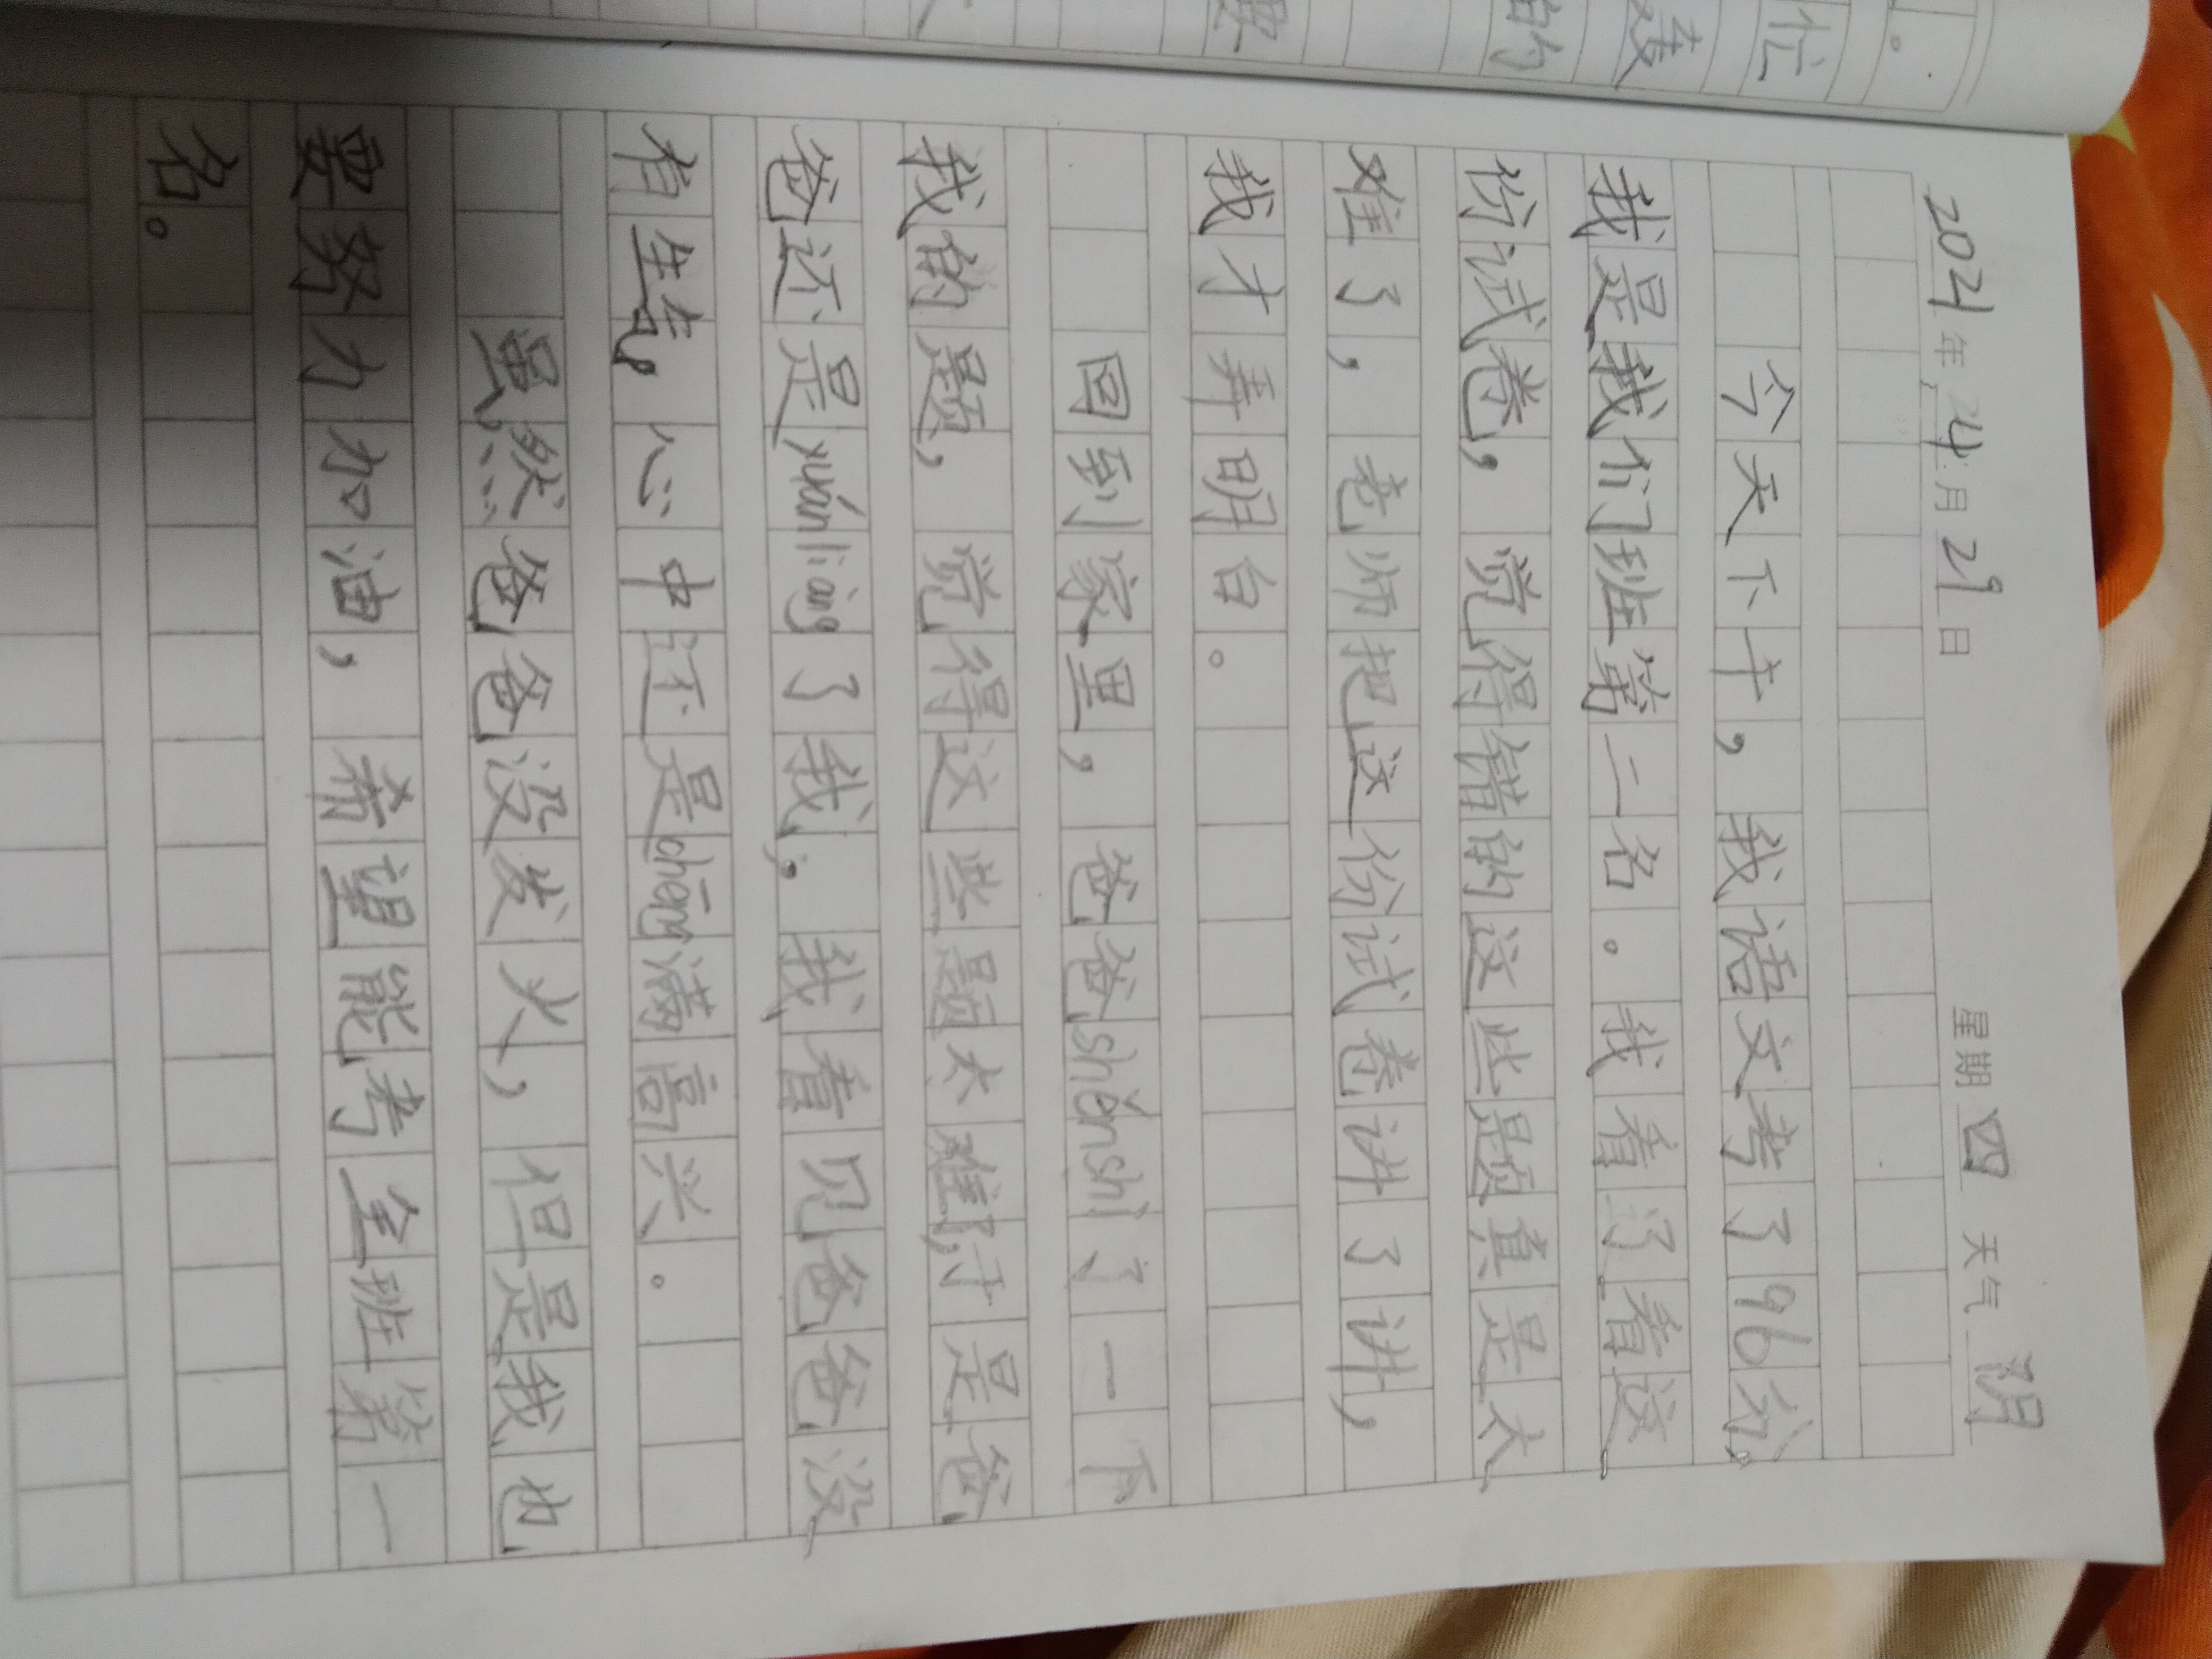 2021年4月29日 星期四 天气 阴
今天下午，我语文考了96分，
我是我们班第二名。我看了看这
份试卷，觉得错的这些题真是太
难了，老师把这份试卷讲了讲，
我才弄明白。
回到家里，爸爸shěnshì了一下
我的题，觉得这些题太难，于是爸
爸还是yuánliàng了我，我看见爸爸没
有生气，心中还是chōng满高兴。
虽然爸爸没发火，但是我也
要努力加油，希望能考全班第一
名。